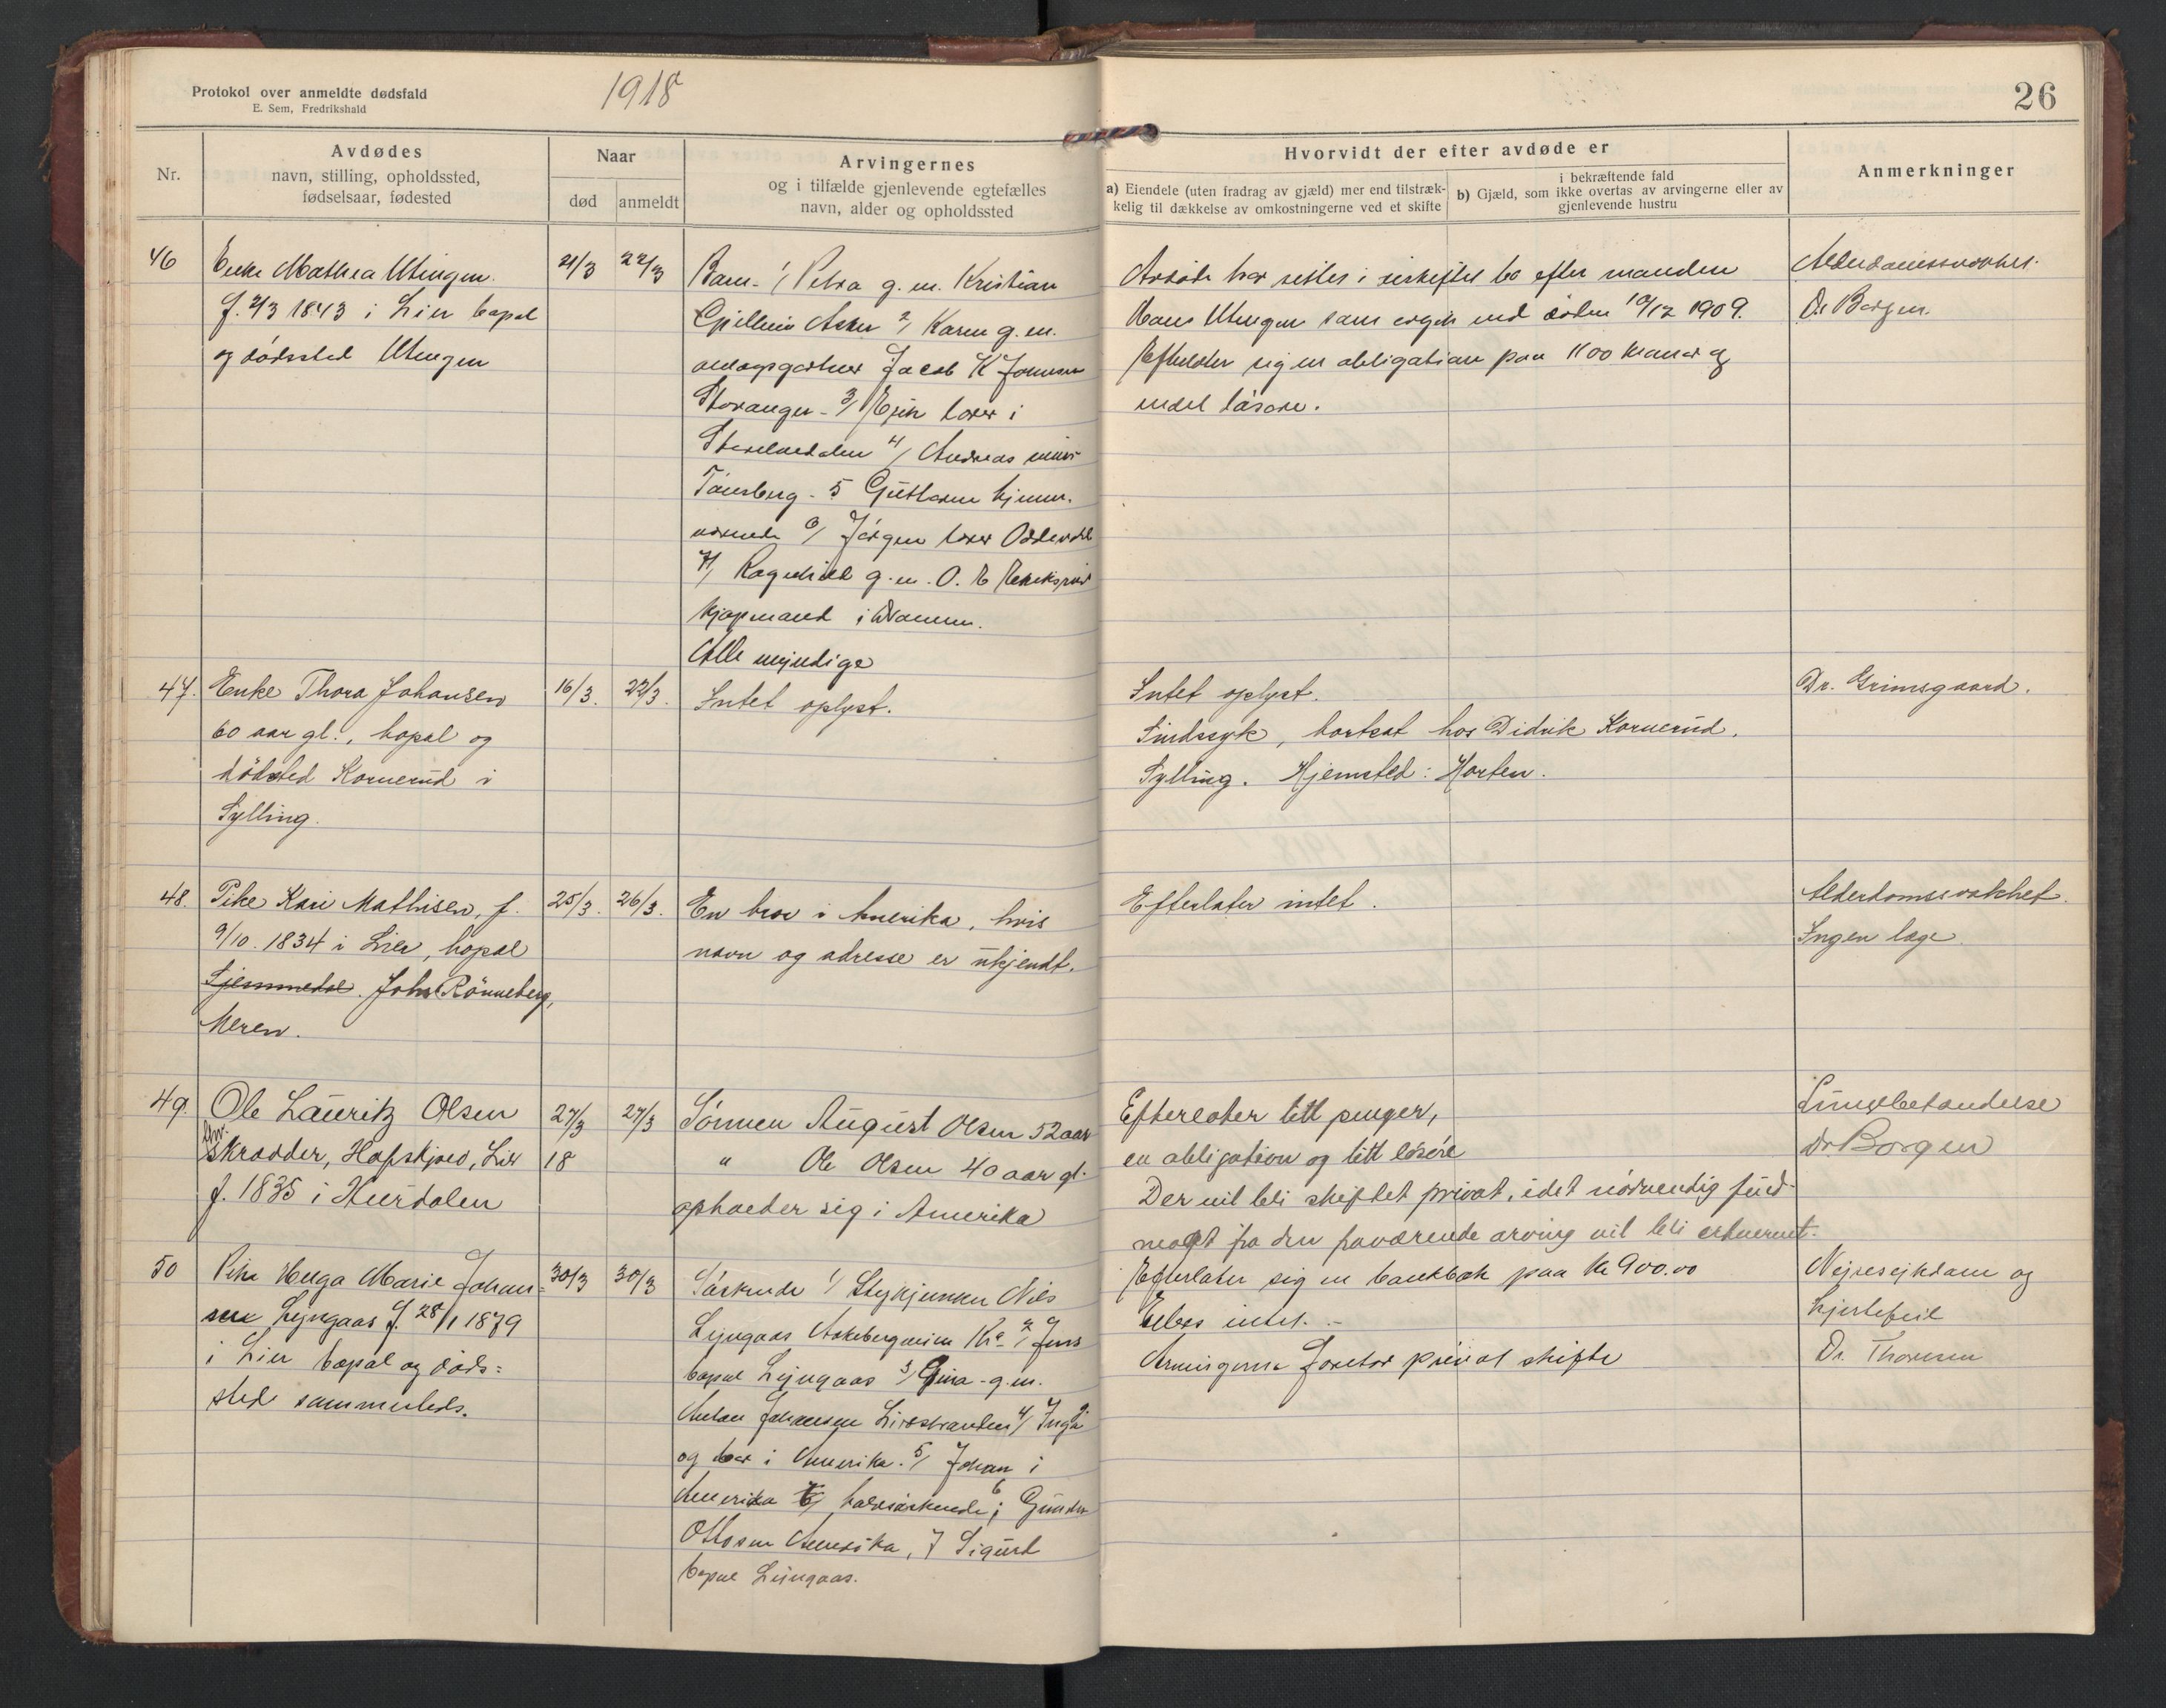 Protokol over anmeldte dødsfald
E. Sem, Fredrikshald
1918
26
Nr.
Avdødes
navn, stilling, opholdssted,
fødselsaar, fødested
Naar
død
anmeldt
Arvingernes
og i tilfælde gjenlevende egtefælles
navn, alder og opholdssted
Hvorvidt der efter avdøde er
a) Eiendele (uten fradrag av gjæld) mer end tilstræk-
kelig til dækkelse av omkostningerne ved et skifte
i bekræftende fald
b) Gjæld, som ikke overtas av arvingerne eller av
gjenlevende hustru
Anmerkninger
46
Enke Mathea Utengen
f. 2/3 1843 i Lier bopæl
og dødssted Utengen
21/3
22/3
Barn - 1/ Petra g. m. Kristian
Asker 2/ Karen g. m.
Jacob K
Stavanger - 3/ i
4/ Andreas
Tønsberg - 5 Guttorm hjemme-
værende 6/ Jørgen
7/ Ragnhild g. m. O.
kjøpmand i Drammen.
Alle myndige
Avdøde har sittet i uskiftet bo efter manden
Hans Utengen som avgik ved døden 10/12 1909.
Efterlater sig en obligation paa 1100 kroner og
endel løsøre.
Alderdomssvakhet.
Dr Borgen.
47.
Enke Thora Johansen
60 aar gl., bopæl og
dödsted Kornerud i
Sylling.
16/3.
22/3.
Intet oplyst.
Intet oplyst.
Sindssyk, bortsat hos Didrik Kornerud,
Sylling. Hjemsted: Horten.
Dr. Grimsgaard.
48.
Pike Kari Mathisen, f.
9/10. 1834 i Lier, bopæl
John Rönneberg,
Meren.
25/3.
26/3.
En bror i Amerika, hvis
navn og adresse er ukjendt.
Efterlater intet.
Alderdomssvakhet.
Ingen læge.
49.
Ole Lauritz Olsen
Em.
skrædder, Hafskjold, Lier
f. 1835 i Hurdalen
27/3
18
27/3
Sönnen August Olsen 52 aar
" Ole Olsen 40 aar gl.
opholder sig i Amerika
Efterlater litt penger,
en obligation og litt lösöre
Der vil bli skiftet privat, idet nödvendig fuld-
magt fra den fraværende arving vil bli erhvervet.
Lungebetændelse
Dr Borgen
50
Pike Helga Marie Johan-
sen Lyngaas f. 28/1 1879
i Lier bopæl og døds=
sted sammesteds.
30/3
30/3
Søskende 1/ Nils
Lyngaas Kra. 2/ Jens
bopæl Lyngaas 3/ Gina - g. m.
Anton Johansen Lierstranden 4/ Inga
og bor i Amerika. 5/ Johan i
Amerika halvsøskende; 6 Gunder
Ottosen Amerika, 7 Sigurd
bopæl Lyngaas.
Efterlater sig en bankbok paa kr 900.00
Ellers intet. -
Arvingerne foretar privat skifte
Nyresykdom og
hjertefeil
Dr. Thoresen